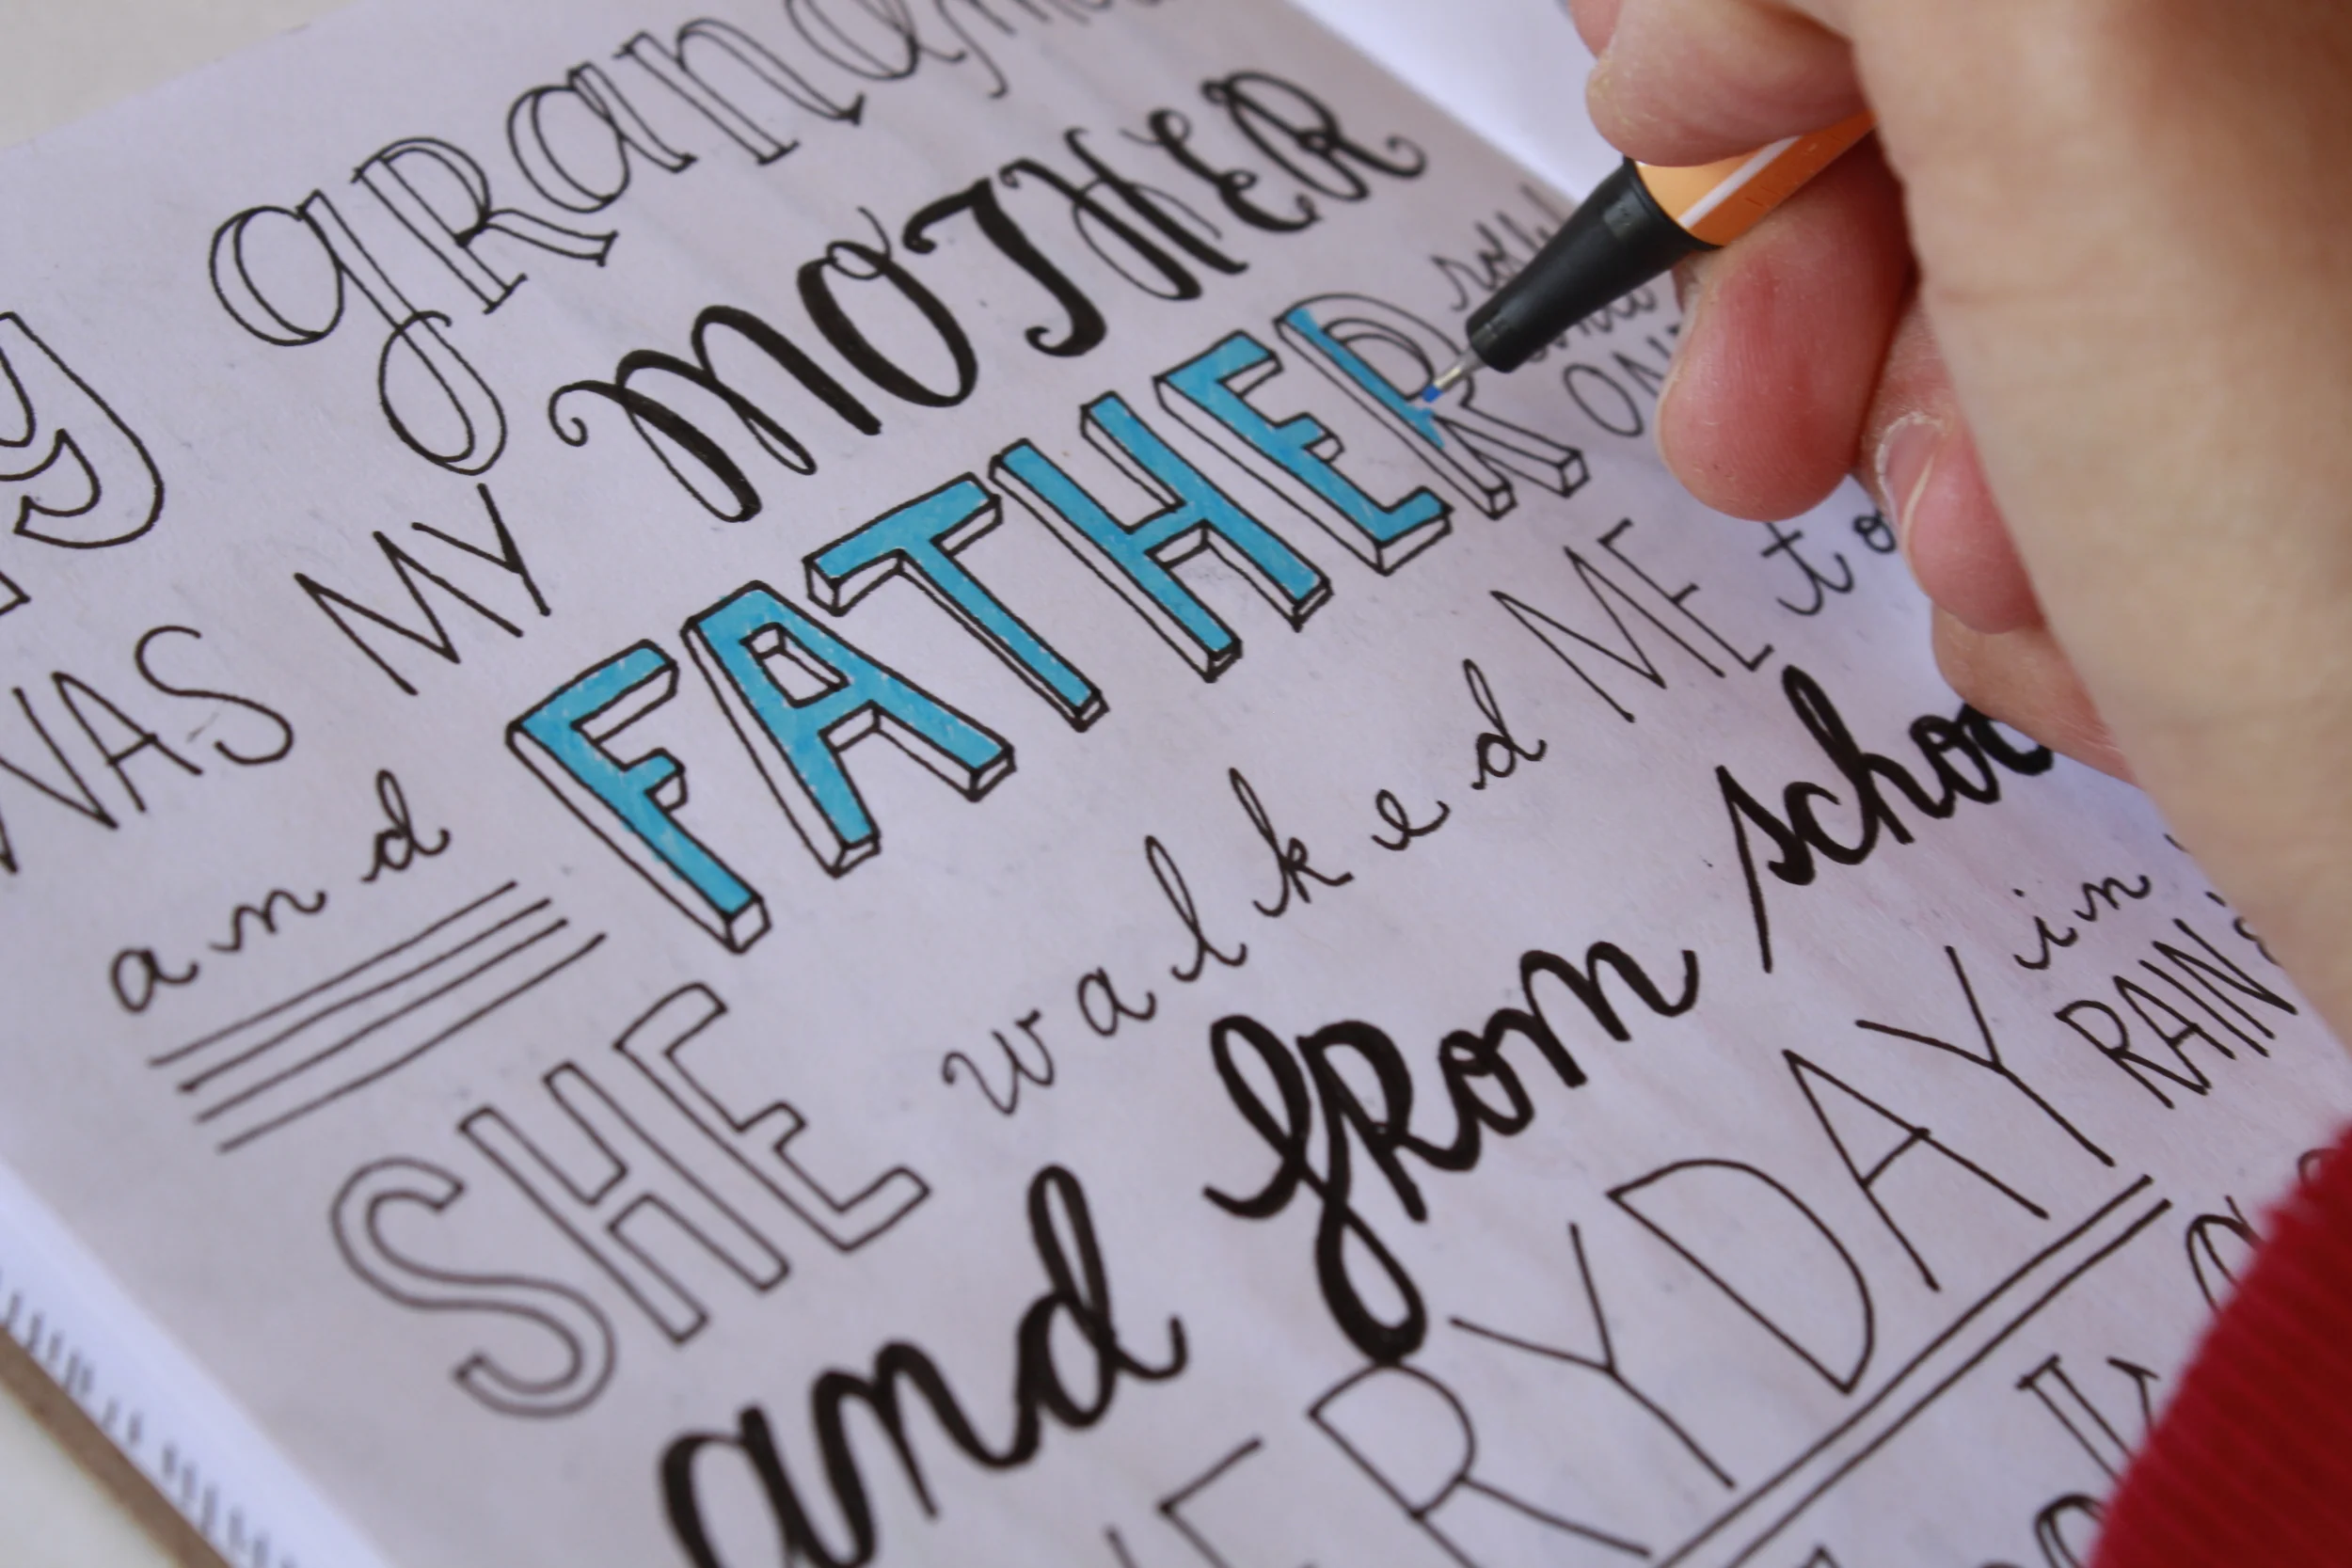 my grandm
WAS MY MOTHER
and FATHER roll
SHE walked ME to
and from schoo
ERYDAY in
RAIN